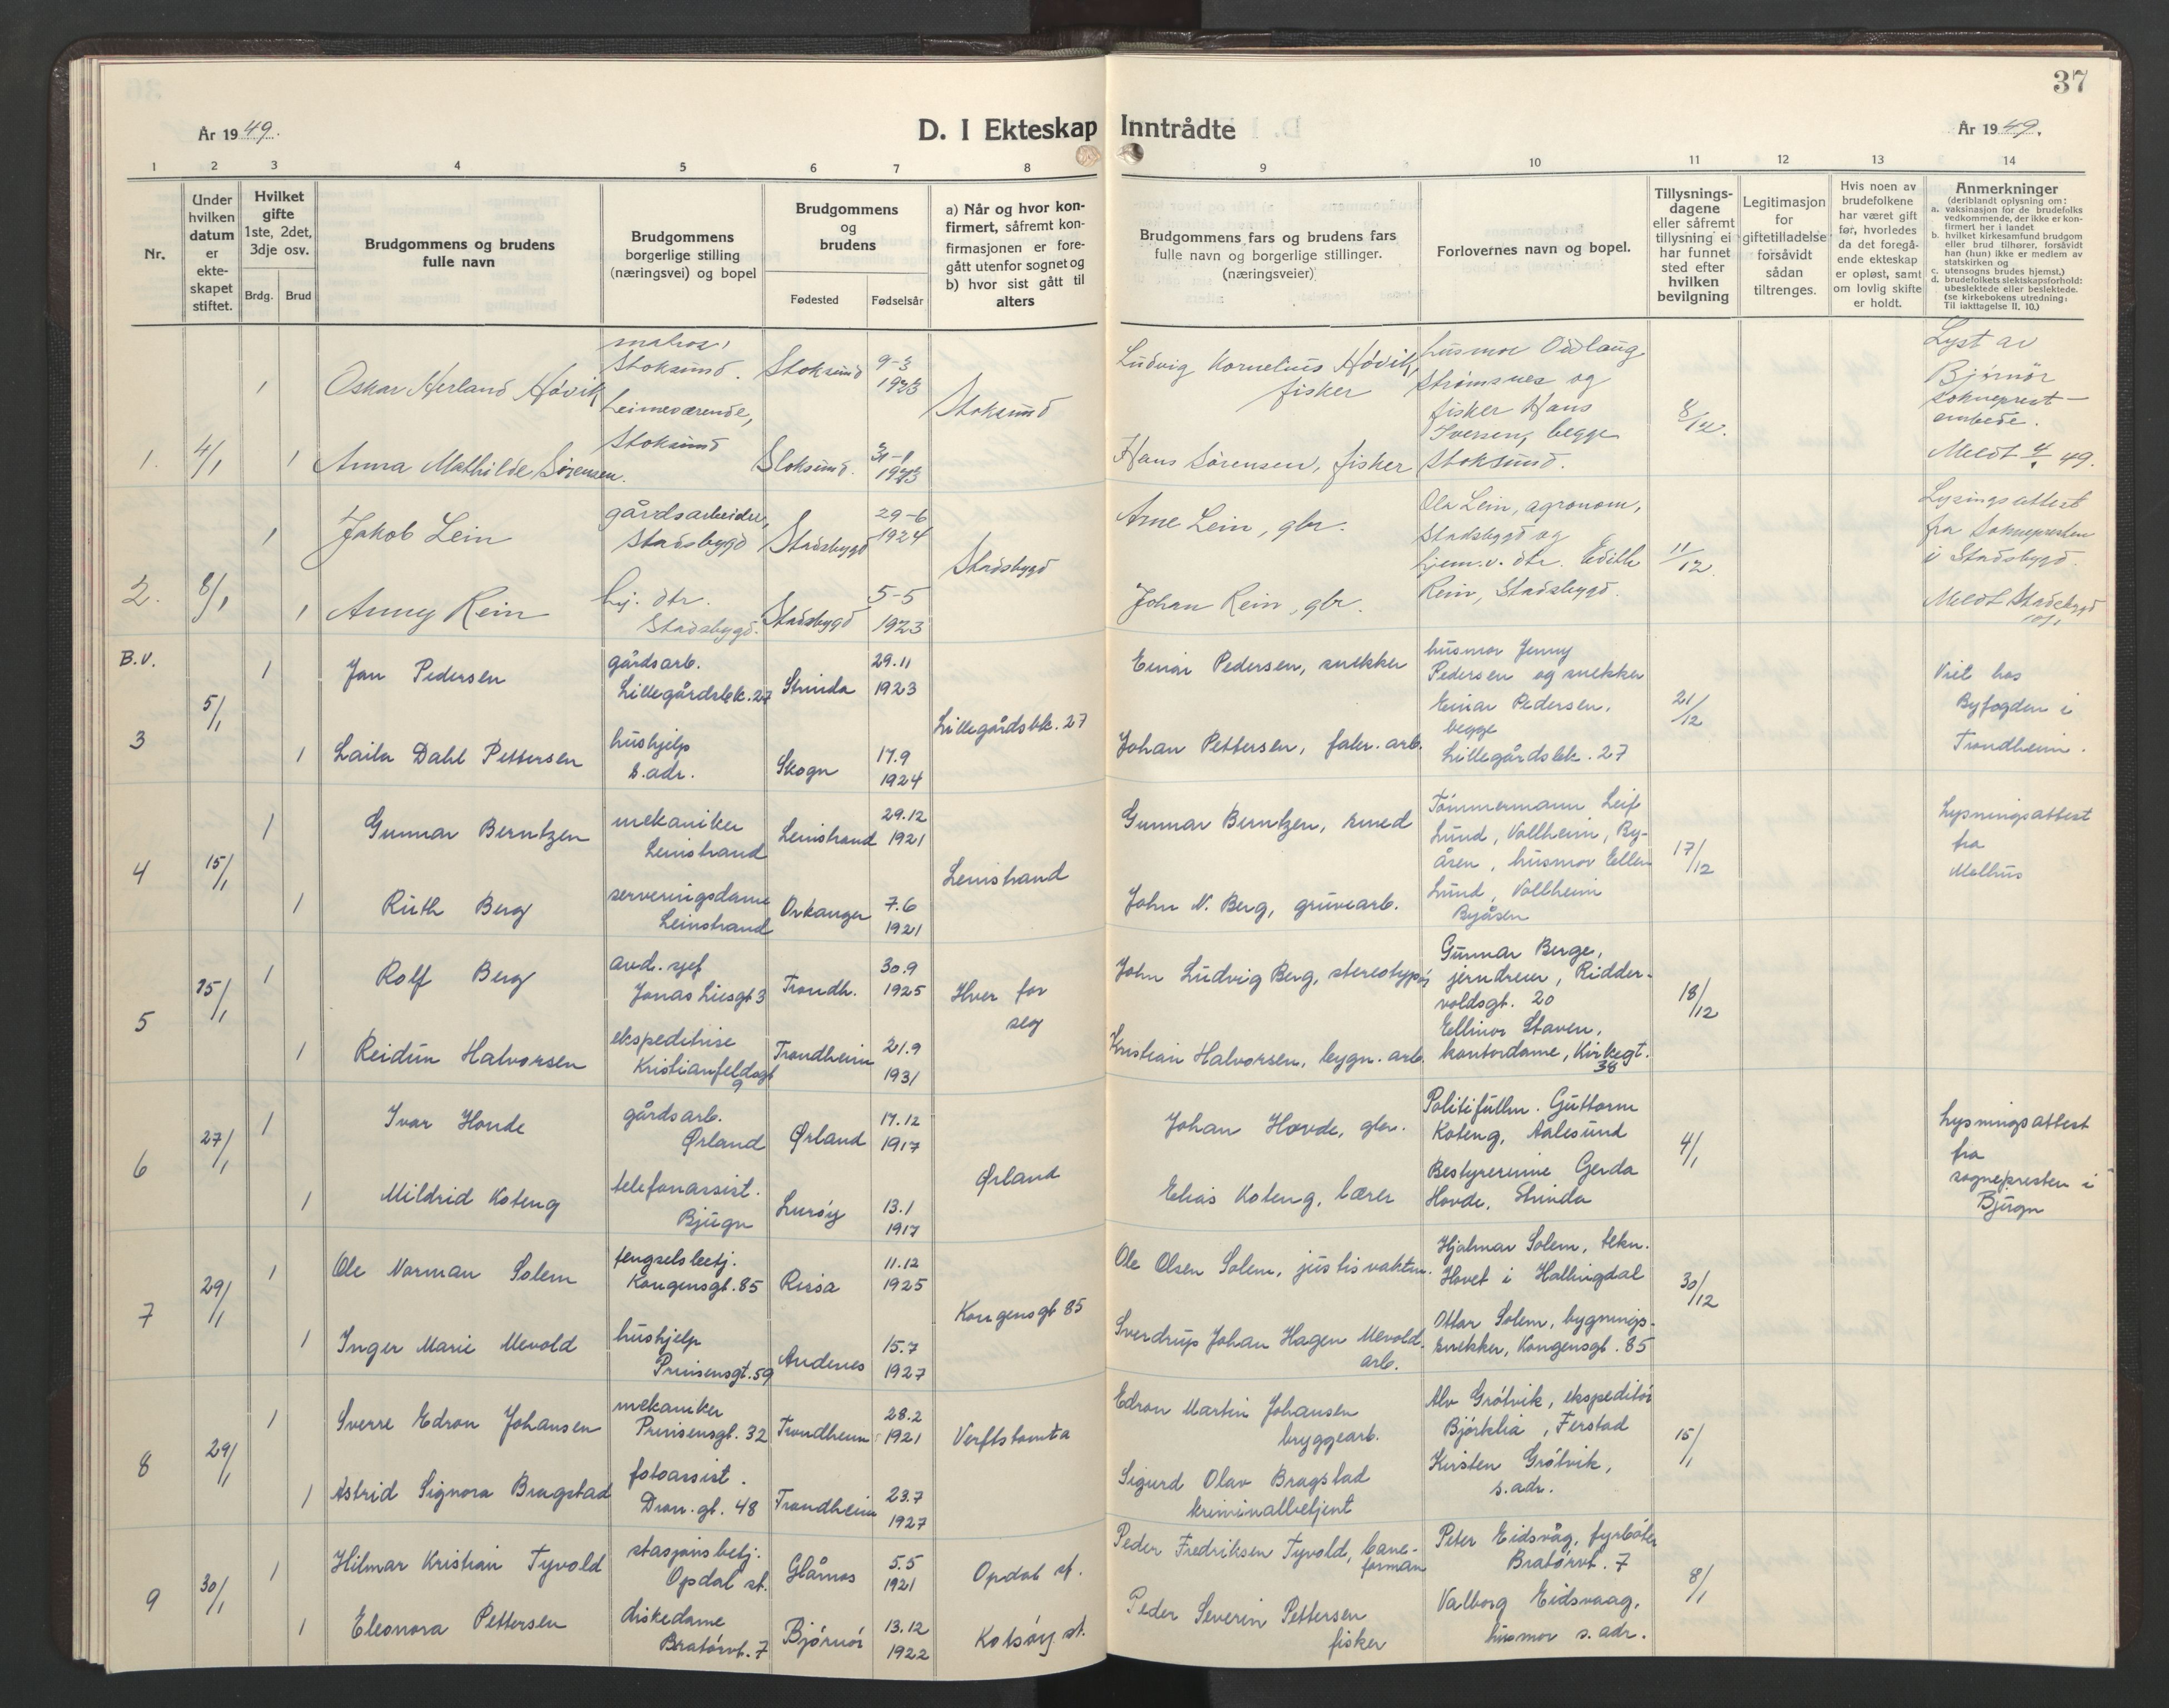 37
År 1949.
D. I Ekteskap Inntrådte
År 1949.
1 2 3 4 5 6 7 8 9 10 11 12 13 14
Nr.
Under hvilken datum er ekte-skapet stiftet.
Hvilket gifte 1ste, 2det, 3dje osv.
Brdg.
Brud
Brudgommens og brudens fulle navn
Brudgommens borgerlige stilling (næringsvei) og bopel
Brudgommens og brudens
Fødested
Fødselsår
a) Når og hvor kon-firmert, såfremt kon-firmasjonen er fore-gått utenfor sognet og b) hvor sist gått til alters
Brudgommens fars og brudens fars fulle navn og borgerlige stillinger. (næringsveier)
Forlovernes navn og bopel.
Tillysnings-dagene eller såfremt tillysning ei har funnet sted efter hvilken bevilgning
Legitimasjon for giftetilladelse forsåvidt sådan tiltrenges.
Hvis noen av brudefolkene har været gift før, hvorledes da det foregå-ende ekteskap er opløst, samt om lovlig skifte er holdt.
Anmerkninger
(deriblandt oplysning om:
a. vaksinasjon for de brudefolks vedkommende, der ikke er kon-firmert her i landet
b. hvilket kirkesamfund brudgom eller brud tilhører, forsåvidt han (hun) ikke er medlem av statskirken og
c. utensogns brudes hjemst.)
d. brudefolkets slektskapsforhold: ubeslektede eller beslektede.
(se kirkebokens utredning: Til iakttagelse II. 10.)
1. 4/1
1 Oskar Herland Høvik
matros, Stoksund.
Stoksund
9-3 1923
Stoksund
Ludvig Kornelius Høvik, fisker
husmor Oddlaug Strømsnes og fisker Hans Iversen, begge Stoksund.
8/12.
Lyst av Bjørnör sokneprest-embede.
Meldt 4/1 49.
1 Anna Mathilde Sørensen.
heimeværende, Stoksund
Stoksund.
31-1 1923
Hans Sørensen, fisker
2. 8/1
1 Jakob Lein
gårdsarbeider, Stadsbygd
Stadsbygd
29-6 1924
Stadsbygd
Arne Lein, gbr.
Ola Lein, agronom, Stadsbygd og hjem.v. dtr. Edith Rein, Stadsbygd.
11/12.
Lysingsattest fra Soknepresten i Stadsbygd.
Meldt Stadsbygd 10/1
1 Anny Rein
hj. dtr. Stadsbygd.
Stadsbygd
5-5 1923
Johan Rein, gbr.
B.V.
3 5/1
1 Jan Pedersen
gårdsarb. Lillegårdsbk. 27
Strinda
29.11 1923
Lillegårdsbk. 27
Einar Pedersen, snekker
husmor Jenny Pedersen og snekker Einar Pedersen, begge Lillegårdsbk. 27
21/12
Viet hos Byfogden i Trondheim.
1 Laila Dahl Pettersen
hushjelp s. adr.
Skogn
17.9 1924
Johan Pettersen, fabr. arb.
4 15/1
1 Gunnar Berntzen
mekaniker Leinstrand
Leinstrand
29.12 1921
Leinstrand
Gunnar Berntzen, smed
Tømmermann Leif Lund, Vollheim, By-åsen, husmor Ellen Lund, Vollheim Byåsen
17/12
Lysningsattest fra Melhus
1 Ruth Berg
serveringsdame Leinstrand
Orkanger
7.6 1921
John N. Berg, gruvearb.
5 15/1
1 Rolf Berg
avd. sjef Jonas Liesgt 3
Trondh.
30.9 1925
Hver for seg
John Ludvig Berg, stereotypør
Gunnar Berge, jerndreier, Ridder-voldsgt. 20
Ellinor Staven, kontordame, Kirkegt. 38
18/12
1 Reidun Halvorsen
ekspeditrise Kristianfeldsgt 9
Trondheim
21.9 1931
Kristian Halvorsen, bygn. arb.
6 27/1
1 Ivar Hovde
gårdsarb. Ørland
Ørland
17.12 1917
Ørland
Johan Hovde, gbr.
Politifullm. Guttorm Koteng, Aalesund
Bestyrerinne Gerda Hovde, Strinda
4/1
Lysningsattest fra sognepresten i Bjugn
1 Mildrid Koteng
telefonassist. Bjugn
Lurøy
13.1 1917
Elias Koteng, lærer
7 29/1
1 Ole Norman Solem
fengselsbetj. Kongensgt. 85
Rissa
11.12 1925
Kongensgt 85
Ole Olsen Solem, justisvaktm.
Hjalmar Solem, tekn. Hovet i Hallingdal
Ottar Solem, bygnings-snekker, Kongensgt. 85
30/12
1 Inger Marie Mevold
hushjelp Prinsensgt. 59
Andenes
15.7 1927
Sverdrup Johan Hagen Mevold. arb.
8 29/1
1 Sverre Edron Johansen
mekaniker Prinsensgt. 32
Trondheim
28.2 1921
Verftstomta
Edron Martin Johansen bryggearb.
Alv Grøtvik, ekspeditør Bjørklia, Ferstad
Kirsten Grøtvik, s. adr.
15/1
1 Astrid Signora Bragstad
fotoassist. Dron. gt. 48
Trondheim
23.7 1927
Sigurd Olav Bragstad kriminalbetjent
9 30/1
1 Hilmar Kristian Tyvold
stasjonsbetj. Opdal st.
Glåmos
5.5 1921
Opdal st.
Peder Fredriksen Tyvold, bane-formann
Peter Eidsvåg, fyrbøter Bratørvt. 7
Valborg Eidsvaag, husmor s. adr.
8/1
1 Eleonora Pettersen
diskedame Bratørvt. 7
Bjørnør
13.12 1922
Kotsøy st.
Peder Severin Pettersen fisker